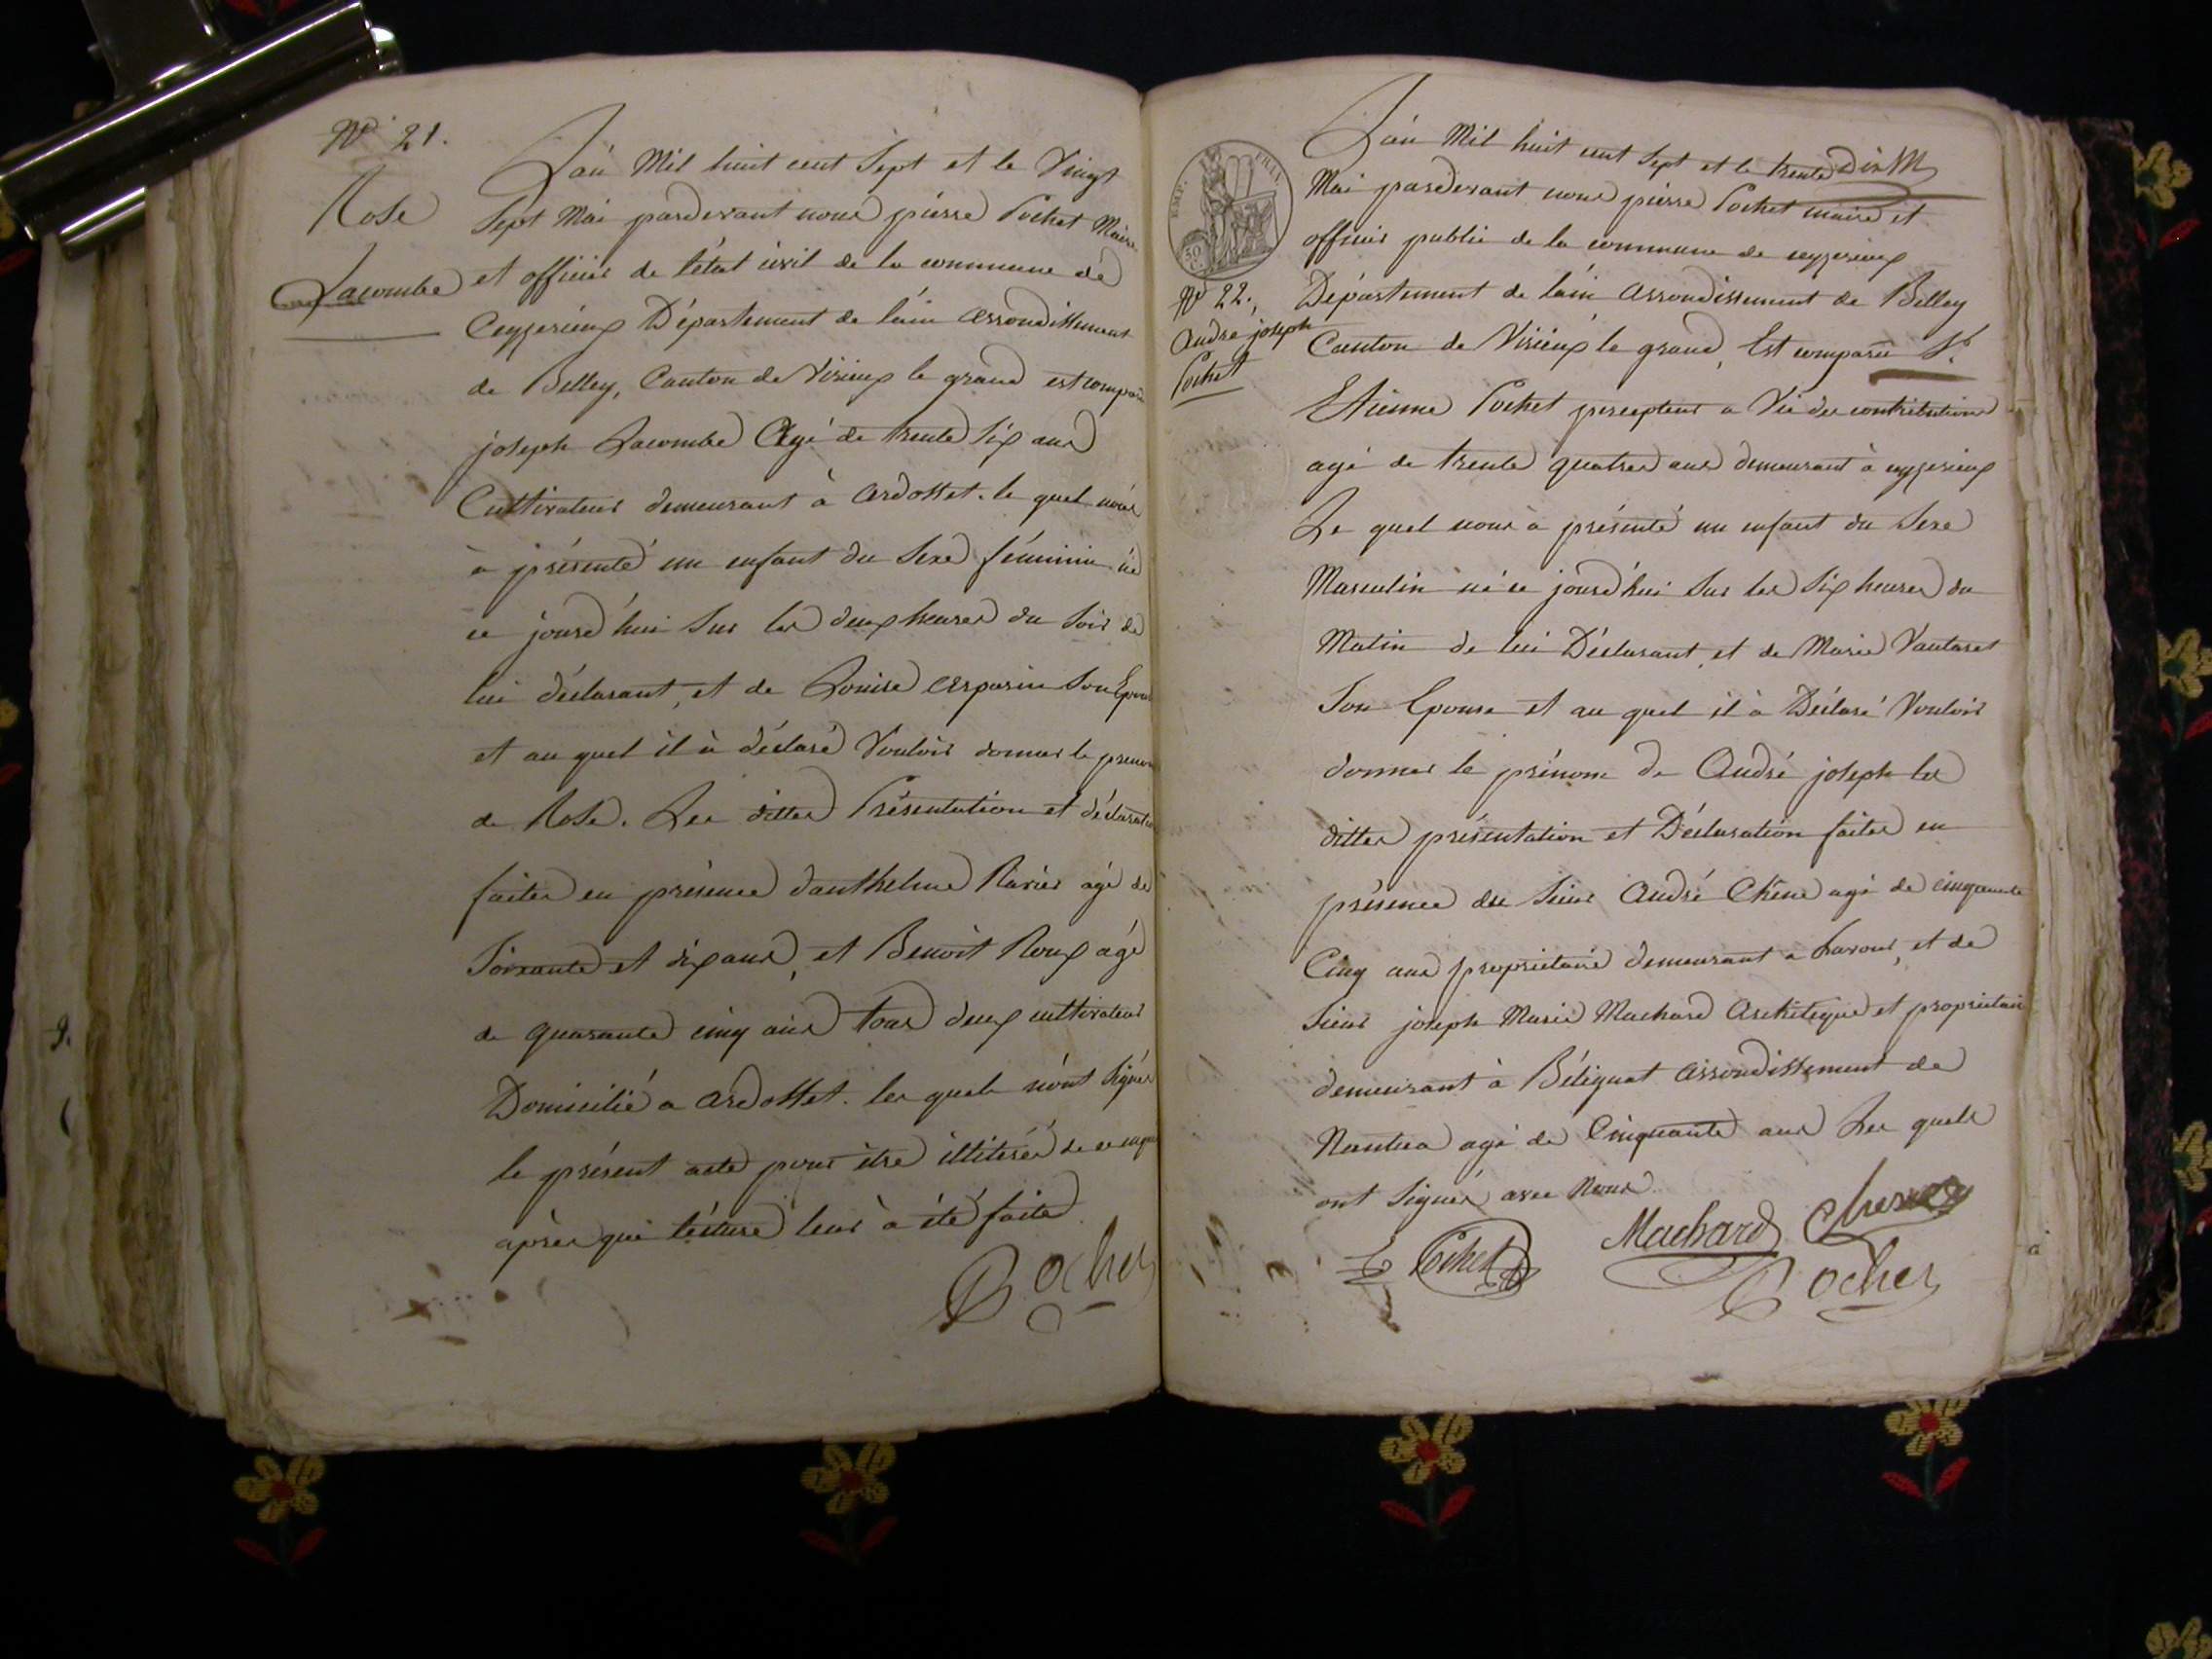 N° 21.
Rose
Lacombe
L'an Mil huit cent Sept et le Vingt
Sept Mai pardevant nous pierre Pochet Maire
et officier de l'état civil de la commune de
Ceyzerieux Département de l'ain arrondissement
de Belley, Canton de Virieux le grand est comparu
joseph Lacombe Agé de trente Six ans
Cultivateur demeurant à ardosset. le quel nous
à présenté un enfant du Sexe féminin né
ce jourd'hui Sur les deux heures du Soir de
lui déclarant, et de Louise Arparin Son Epouse
et au quel il à déclaré Vouloir donner le prenom
de Rose. Les dittes Présentation et déclaration
faites en présence d'anthelme Ravier agé de
Soixante et dix ans, et Benoit Roux agé
de quarante cinq ans tous deux cultivateurs
Domicilié a ardosset. les quels n'ont Signés
le présent acte pour être illiterés de ce enquis
après que lecture leur à été faite
Pochet
EMP. FRAN.
50 C.
N° 22.
André joseph
Pochet
L'an Mil huit cent Sept et le trente
Mai pardevant nous pierre Pochet maire et
officier public de la commune de ceyzerieux
Département de l'ain arrondissement de Belley
Canton de Virieux le grand, Est comparu Sr.
Etienne Pochet percepteur a Vie des contributions
agé de trente quatre ans demeurant à ceyzerieux
Le quel nous à présenté un enfant du Sexe
Masculin né ce jourd'hui Sur les Six heures du
Matin de lui Déclarant, et de Marie Vautaret
Son Epouse et au quel il à Déclaré Vouloir
donner le prénom de André joseph les
dittes présentation et Déclaration faites en
présence du Sieur André Chêne agé de cinquante
Cinq ans propriétaire demeurant a Lavour, et de
Sieur joseph Marie Machard Architeque et propriétaire
demeurant à Bélignat arrondissement de
Nantua agé de Cinquante ans Les quels
ont Signés avec Nous
E Pochet Machard Chesne
Pochet